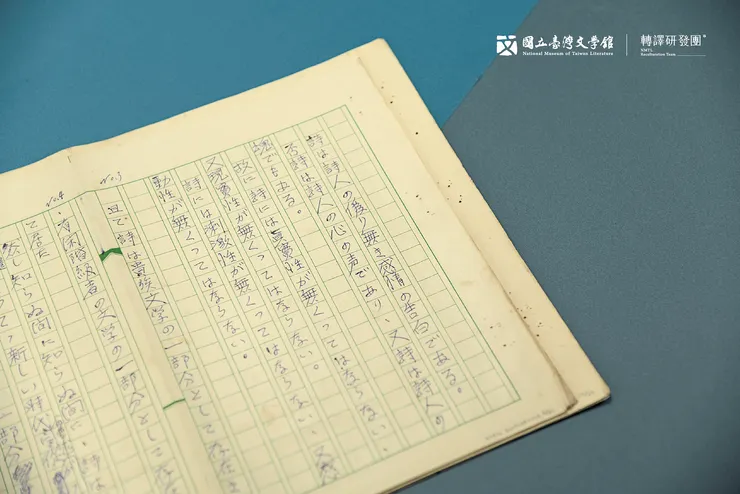 國立臺灣文學館
National Museum of Taiwan Literature
轉譯研發團
詩は詩人の偽り無き感情の告白である。
否詩は詩人の心の声であり、又詩は詩人の
魂でもある。
故に詩には眞實性が無くってはならない、
又現實性が無くってはならない。
詩には刺激性が無くってはならない、又感
動性が無くってはならない。
No.3
且て詩は貴族文学の一部分として
No.4
有閑階級者の文学の一部分としてな
知らぬ間に知らぬ間に、詩は
新しい時代